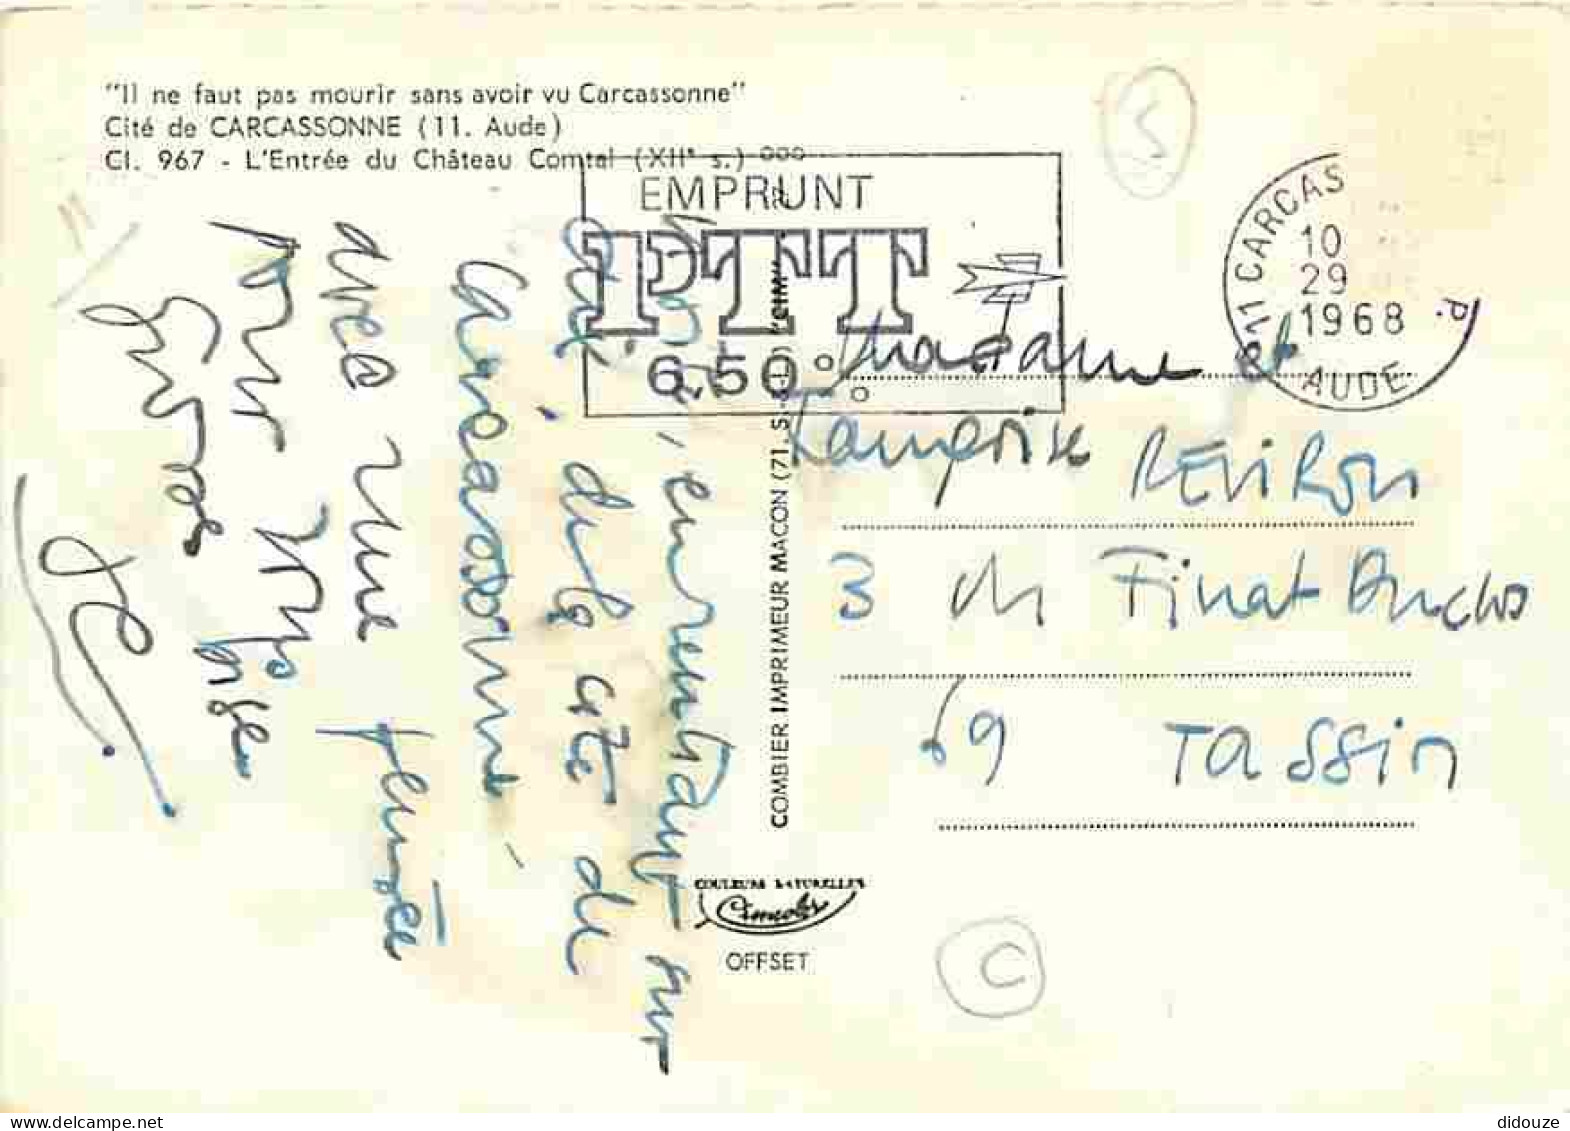 "Il ne faut pas mourir sans avoir vu Carcassonne"
Cité de CARCASSONNE (11. Aude)
Cl. 967 - L'Entrée du Château Comtal (XIIe s.) ooo
EMPRUNT
PTT
6,50
11 CARCAS P.
10
29
1968
AUDE
S
11
, en rentrant sur
de la cité de
Carcassonne
avec une pensée
pour
Grosses bises
COMBIER IMPRIMEUR MACON (71. S.-&-L.) "CIM"
Madame et
Françoise REVIRON
3 ch Finat Duclos
69 TASSin
COULEURS NATURELLES
Cimcolor
OFFSET
C
didouze